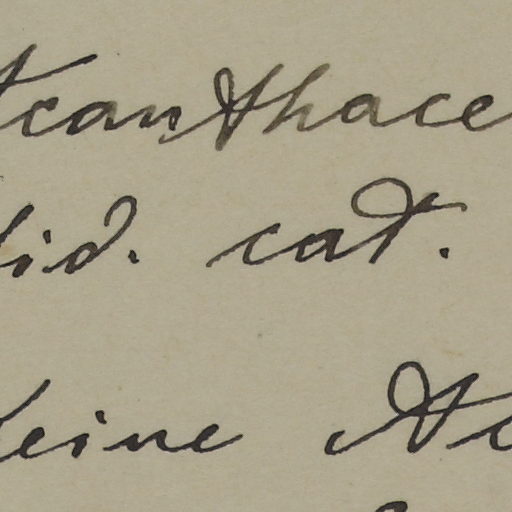 Acanthace
did. cat.
keine Ac